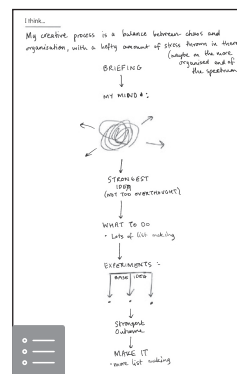 I think...
My creative process is a balance between chaos and
organisation, with a hefty amount of stress thrown in there
(maybe on the more
organised end of
the spectrum
BRIEFING
MY MIND*:
STRONGEST
IDEA
(NOT TOO OVERTHOUGHT)
WHAT TO DO
• Lots of list making
EXPERIMENTS :-
BASE IDEA
Strongest
Outcome
MAKE IT
• more list making